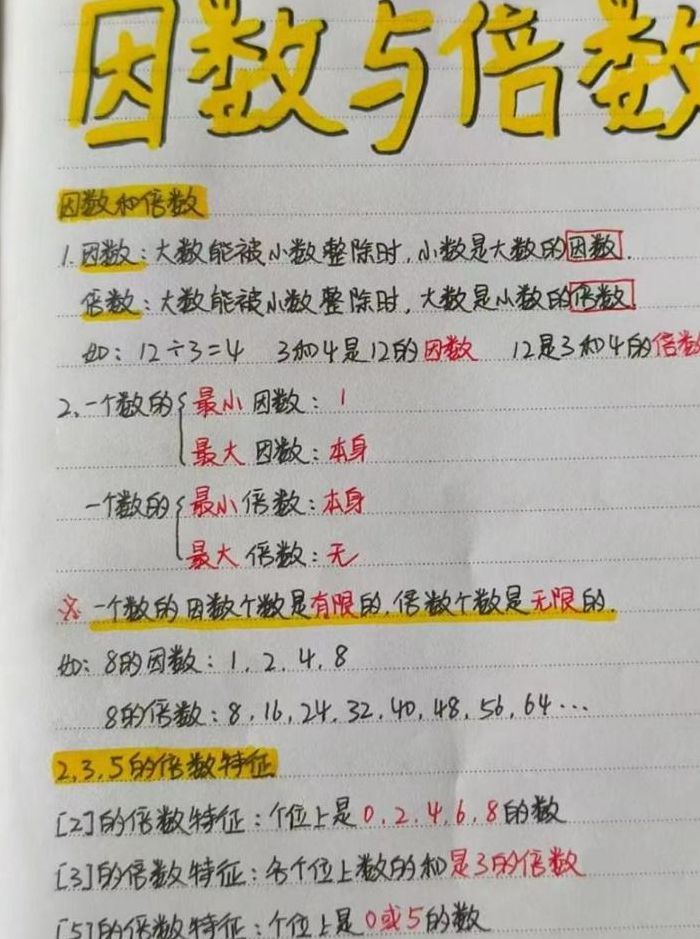 因数与倍数
因数和倍数
1.因数：大数能被小数整除时，小数是大数的因数.
倍数：大数能被小数整除时，大数是小数的倍数.
如：12÷3=4 3和4是12的因数 12是3和4的倍数
2.一个数的{最小因数：1
最大因数：本身
一个数的{最小倍数：本身
最大倍数：无
※一个数的因数个数是有限的，倍数个数是无限的.
如：8的因数：1，2，4，8
8的倍数：8，16，24，32，40，48，56，64…
2,3,5的倍数特征
[2]的倍数特征：个位上是0，2，4，6，8的数
[3]的倍数特征：各个位上数的和是3的倍数
[5]的倍数特征：个位上是0或5的数